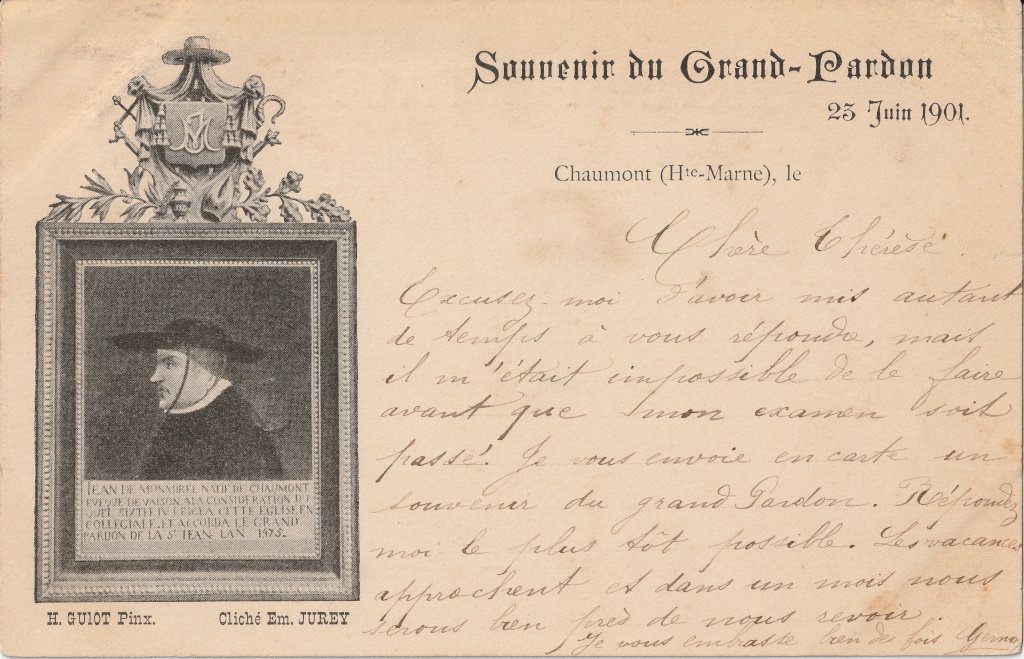 Souvenir du Grand-Pardon
23 Juin 1901.
Chaumont (Hte-Marne), le
Chère Thérèse.
Excusez-moi d'avoir mis autant
de temps à vous répondre, mais
il m'était impossible de le faire
avant que mon examen soit
passé. Je vous envoie en carte un
souvenir du grand Pardon. Répondez
moi le plus tôt possible. Les vacances
approchent et dans un mois nous
serons bien près de nous revoir.
Je vous embrasse bien des fois
JM
JEAN DE MONMIREL NATIF DE CHAUMONT
EVEQUE DE VAISON A LA CONSIDERATION DU
QUEL SIXTE IV ERIGEA CETTE EGLISE EN
COLLEGIALE, ET ACCORDA LE GRAND
PARDON DE LA St JEAN LAN 1475.
H. GUIOT Pinx. Cliché Em. JUREY